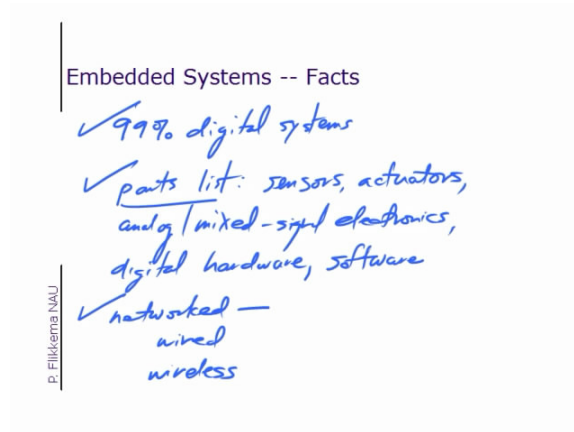 Embedded Systems -- Facts
✓ 99% digital systems
✓ parts list: sensors, actuators,
analog/mixed-signal electronics,
digital hardware, software
✓ networked —
wired
wireless
P. Flikkema NAU